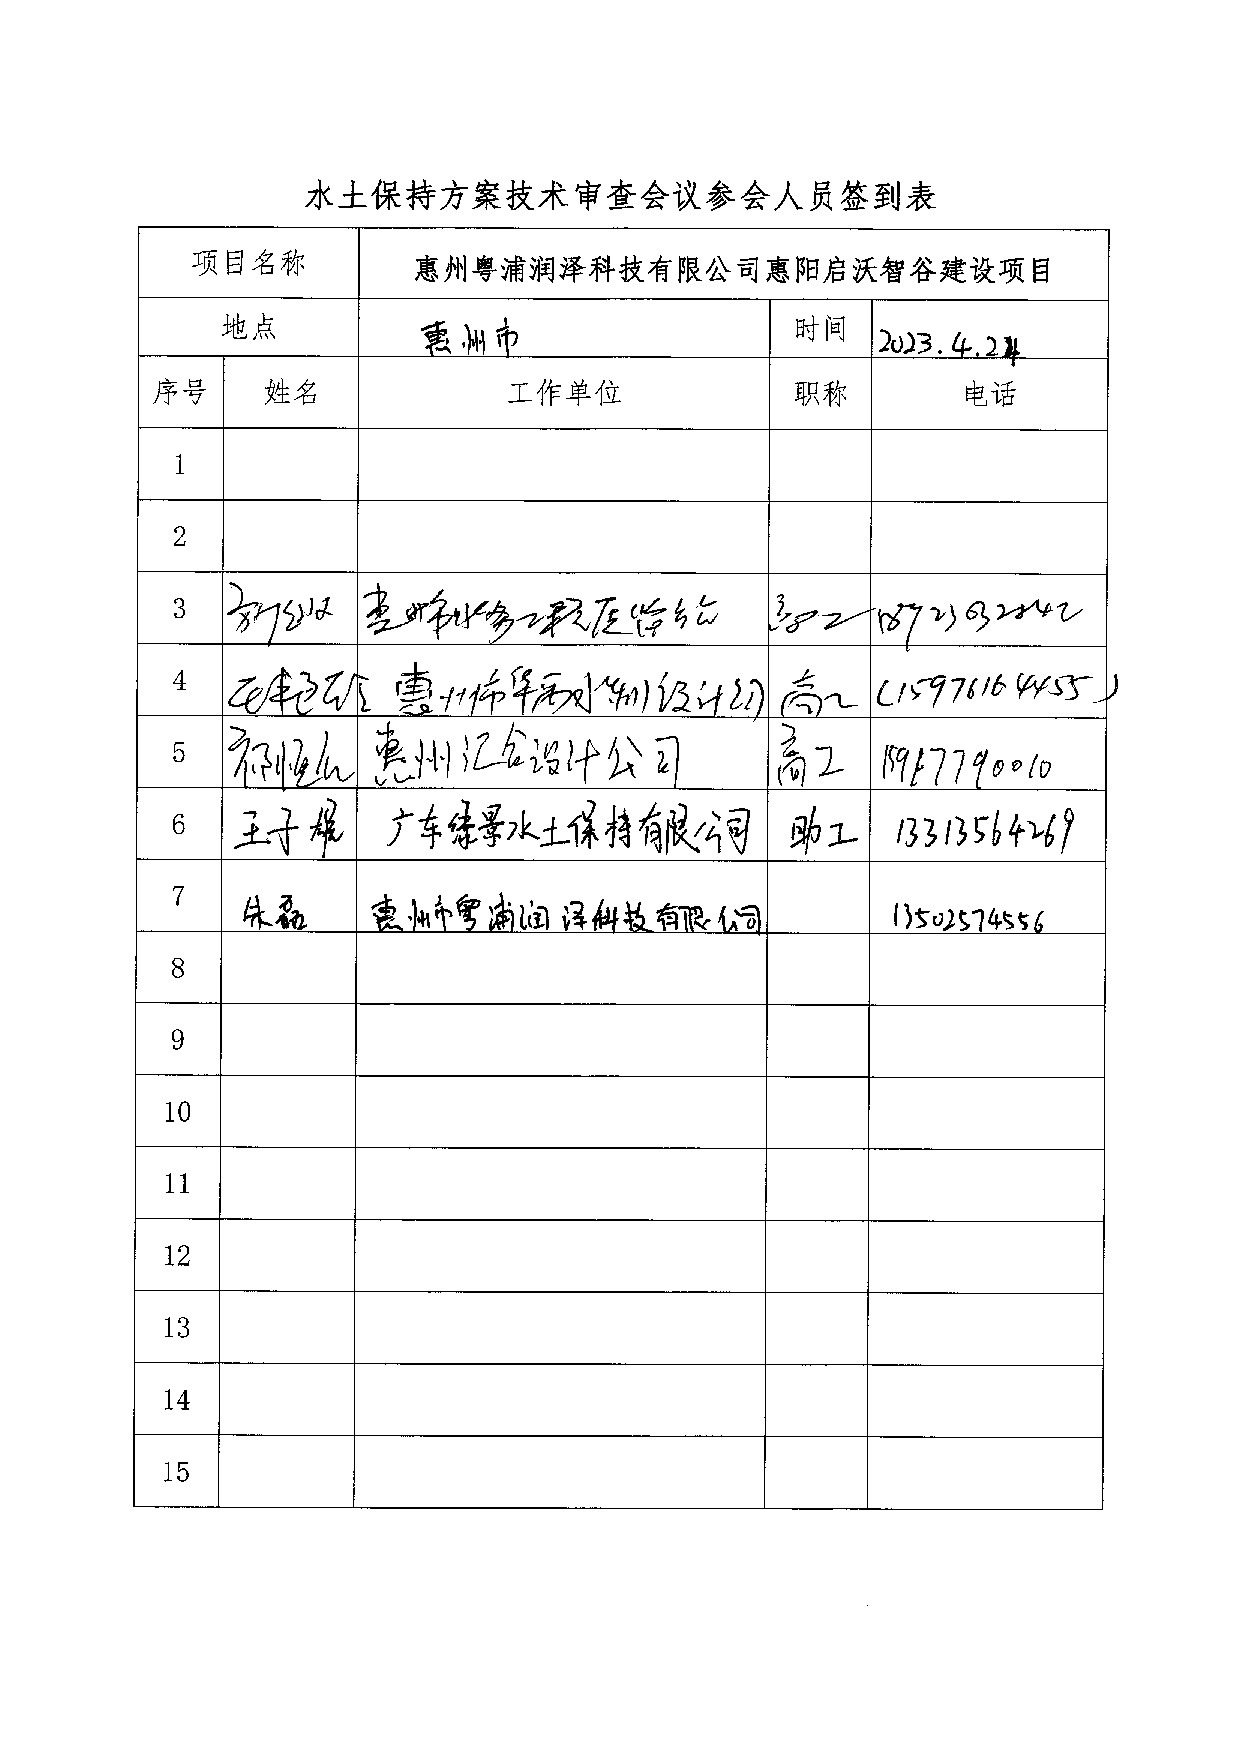 水土保持方案技术审查会议参会人员签到表
项目名称 惠州粤浦润泽科技有限公司惠阳启沃智谷建设项目
地点 惠州市 时间 2023.4.24
序号 姓名 工作单位 职称 电话
1
2
3 高工
4 惠州市华禹水利设计 高工 (15976164455)
5 惠州汇合设计公司 高工 15917790010
6 王子 广东绿景水土保持有限公司 助工 13313564269
7 朱磊 惠州市粤浦润泽科技有限公司 13502574556
8
9
10
11
12
13
14
15